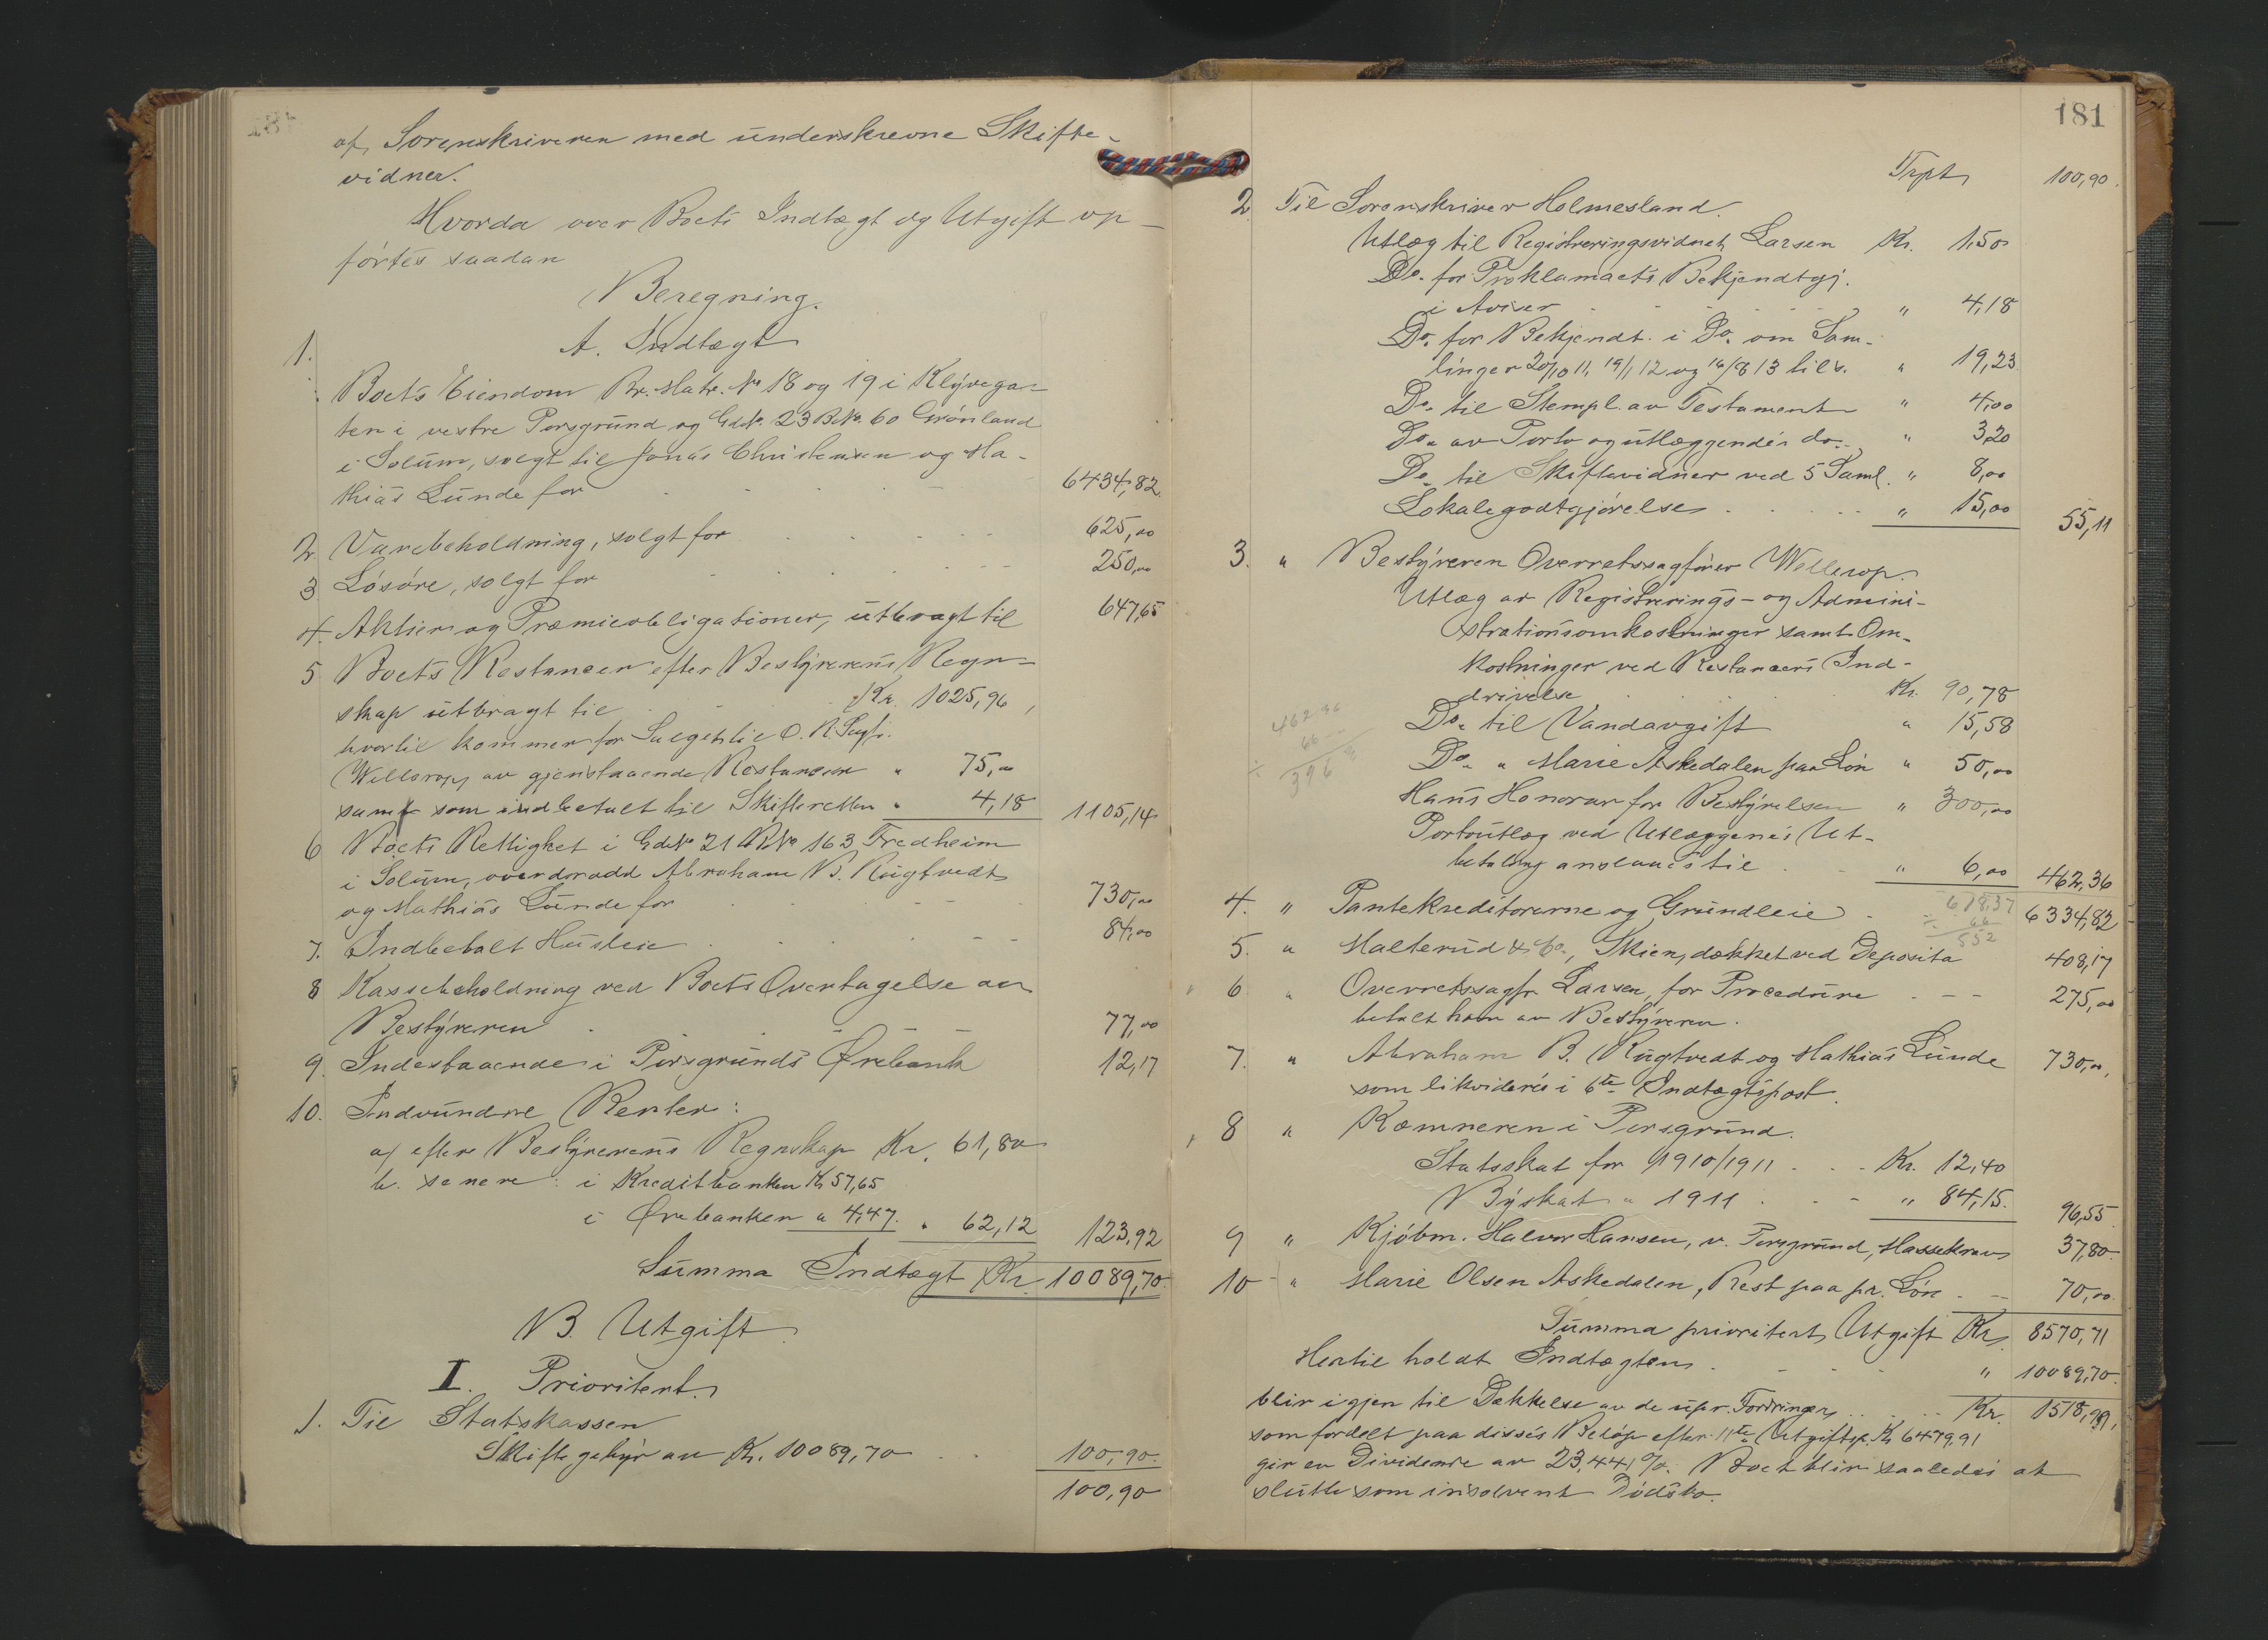 af Sorenskriveren med underskrevne Skifte-
vidner.
Hvorda over Boets Indtægt og Utgift op-
førtes saadan
Beregning.
A. Indtægt
1.
Boets Eiendom Br. Matr. No 18 og 19 i Klyvega-
ten i vestre Porsgrund og Gdno. 23 BNo. 60 Grønland
i Solum, solgt til Jonas Christensen og Ma-
thias Lunde for 6434,82.
2. Varebeholdning, solgt for 625,00
3 Løsøre, solgt for 250,00
4. Aktier og Præmieobligationer, utbragt til 647,65
5 Boets Restancer efter Bestyrerens Regn-
skap utbragt til Kr. 1025,96,
hvortil kommer for Salget til O. R. Sagf.
Wellerop av gjenstaaende Restancer " 75,00
samt som indbetalt til Skifteretten " 4,18 1105,14
6 Boets Rettighet i Gdno 21 BNo 163 Fredheim
i Solum, overdoradd Abraham B. Rugtvedt
og Mathias Lunde for 730,00
7. Indbetalt Husleie 84,00
8 Kassebeholdning ved Boets Overtagelse av
Bestyreren 77,00
9. Indestaaende i Porsgrunds Ørebank 12,17
10. Indvundne Renter:
a/ efter Bestyrerens Regnskap Kr. 61,80
b. senere: i Kreditbanken Kr 57,65
i Ørebanken " 4,47. " 62,12 123,92
Summa Indtægt Kr. 10089,70.
B. Utgift.
I. Prioritert.
1. Til Statskassen
Skiftegebyr av Kr. 10089,70 100,90.
100,90
181
Trpt. 100,90.
2. Til Sorenskriver Holmesland.
Utlæg til Registreringsvidnet Larsen Kr. 1,50
Do. for Proklamaets Bekjendtgj.
i Aviser " 4,18
Do. for Bekjendt. i Do. om Sam-
linger 20/10 11, 19/1 12 og 16/8 13 tils. " 19,23.
Do. til Stempl. av Testament " 4,00
Do. av Porto og utlæggendes do. " 3,20
Do. til Skiftevidner ved 5 Saml. " 8,00
Lokalegodtgjørelse " 15,00 55,11
3. " Bestyreren Overretssagfører Wellerop.
Utlæg av Registrerings- og Admini-
strationsomkostninger samt Om-
kostninger ved Restancers Ind-
drivelse Kr. 90,78
Do. til Vandavgift " 15,58
Do. " Marie Askedalen paa Løn " 50,00
Hans Honorar for Bestyrelsen " 300,00
Portoutlæg ved Utlæggenes Ut-
betaling anslaaes til " 6,00 462,36
462 36
66
396
4. " Pantekreditorerne og Grundleie 6334,82
618,37
66
552
5. " Halterud & Co., Skien, dækket ved Deposita 408,17
6 " Overretssagfr. Larsen, for Procedure 275,00
betalt ham av Bestyreren.
7. " Abraham B. Rugtvedt og Mathias Lunde 730,00,
som likvideres i 6te Indtægtspost.
8 " Kæmneren i Porsgrund.
Statsskat for 1910/1911 Kr. 12,40
Byskat " 1911 " 84,15. 96,55
9 " Kjøbm. Halvor Hansen, v. Porsgrund, Massekrav 37,80.
10 " Marie Olsen Askedalen, Rest paa pr. Løn 70,00.
Summa prioritert Utgift Kr. 8570,71
Hertil holdt Indtægten " 10089,70.
blir igjen til Dækkelse av de upr. Fordringer Kr. 1518,99,
som fordelt paa disses Beløp efter 11te Utgiftsp. Kr 6479,91
gir en Dividende av 23,441 %. Boet blir saaledes at
slutte som insolvent Dødsbo.